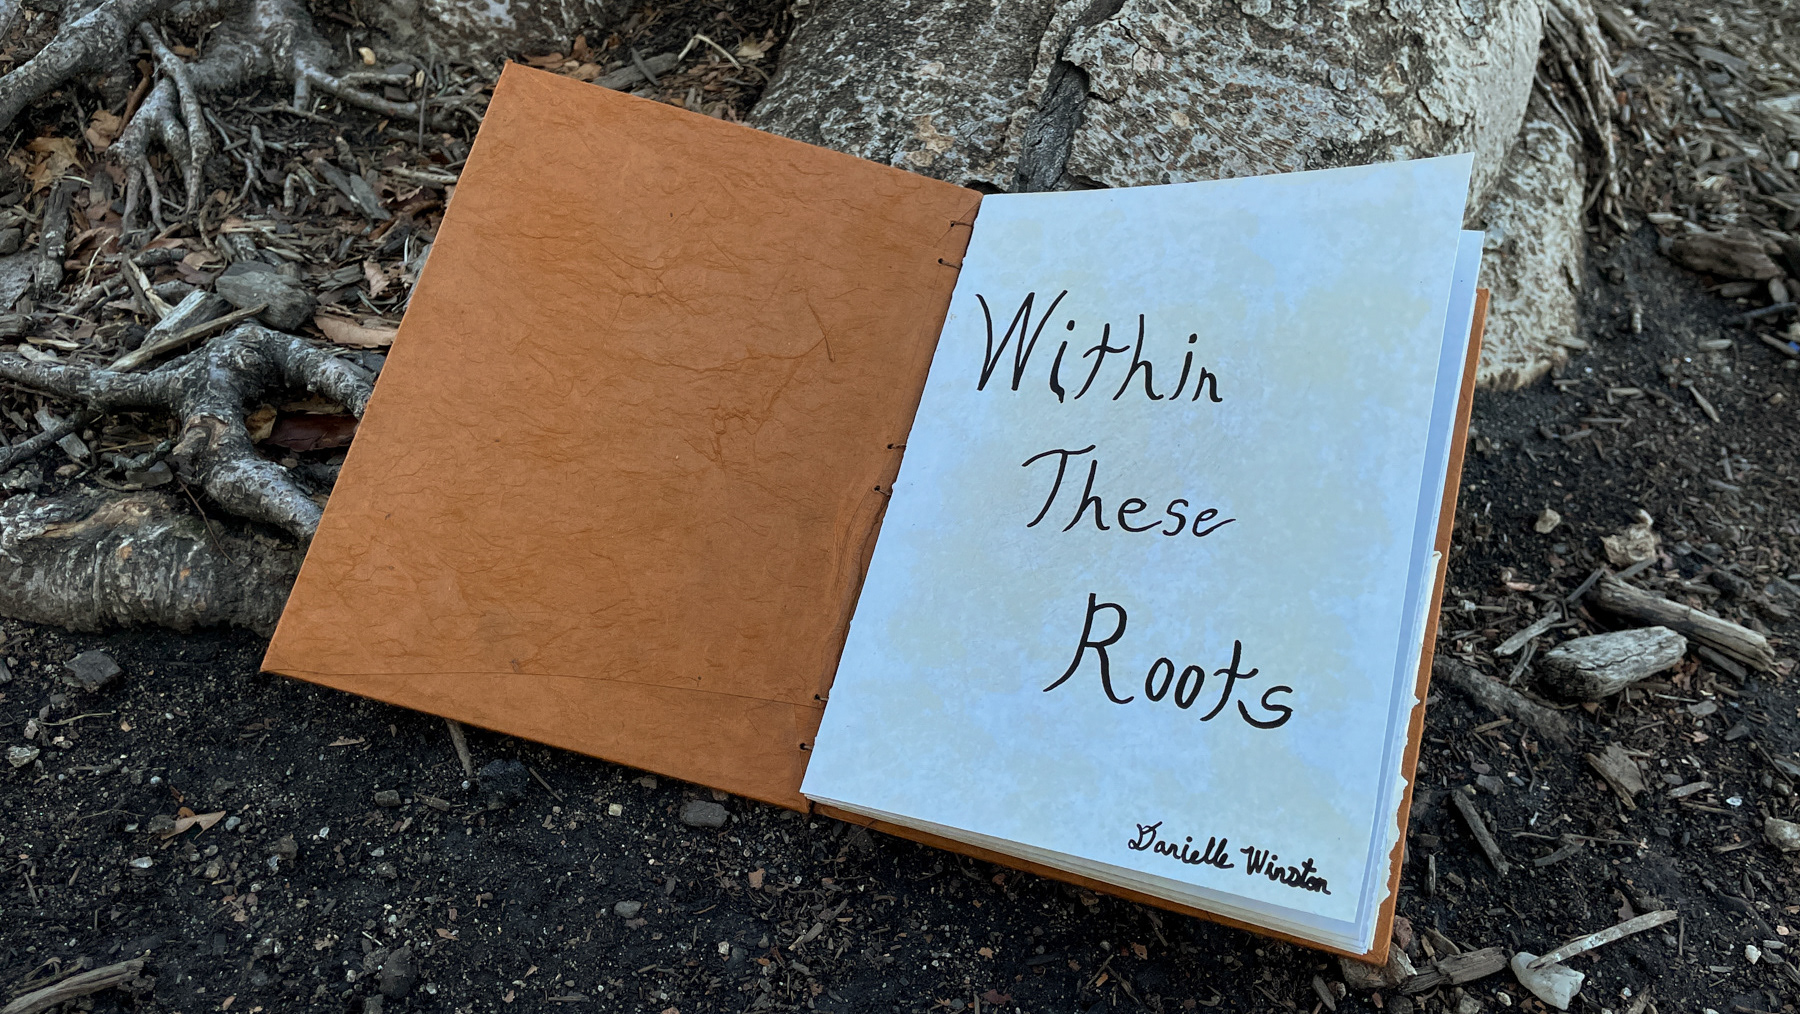 Within
These
Roots
Danielle Winston